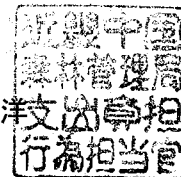 近畿中国
森林管理局
洋支出負担
行為担当官